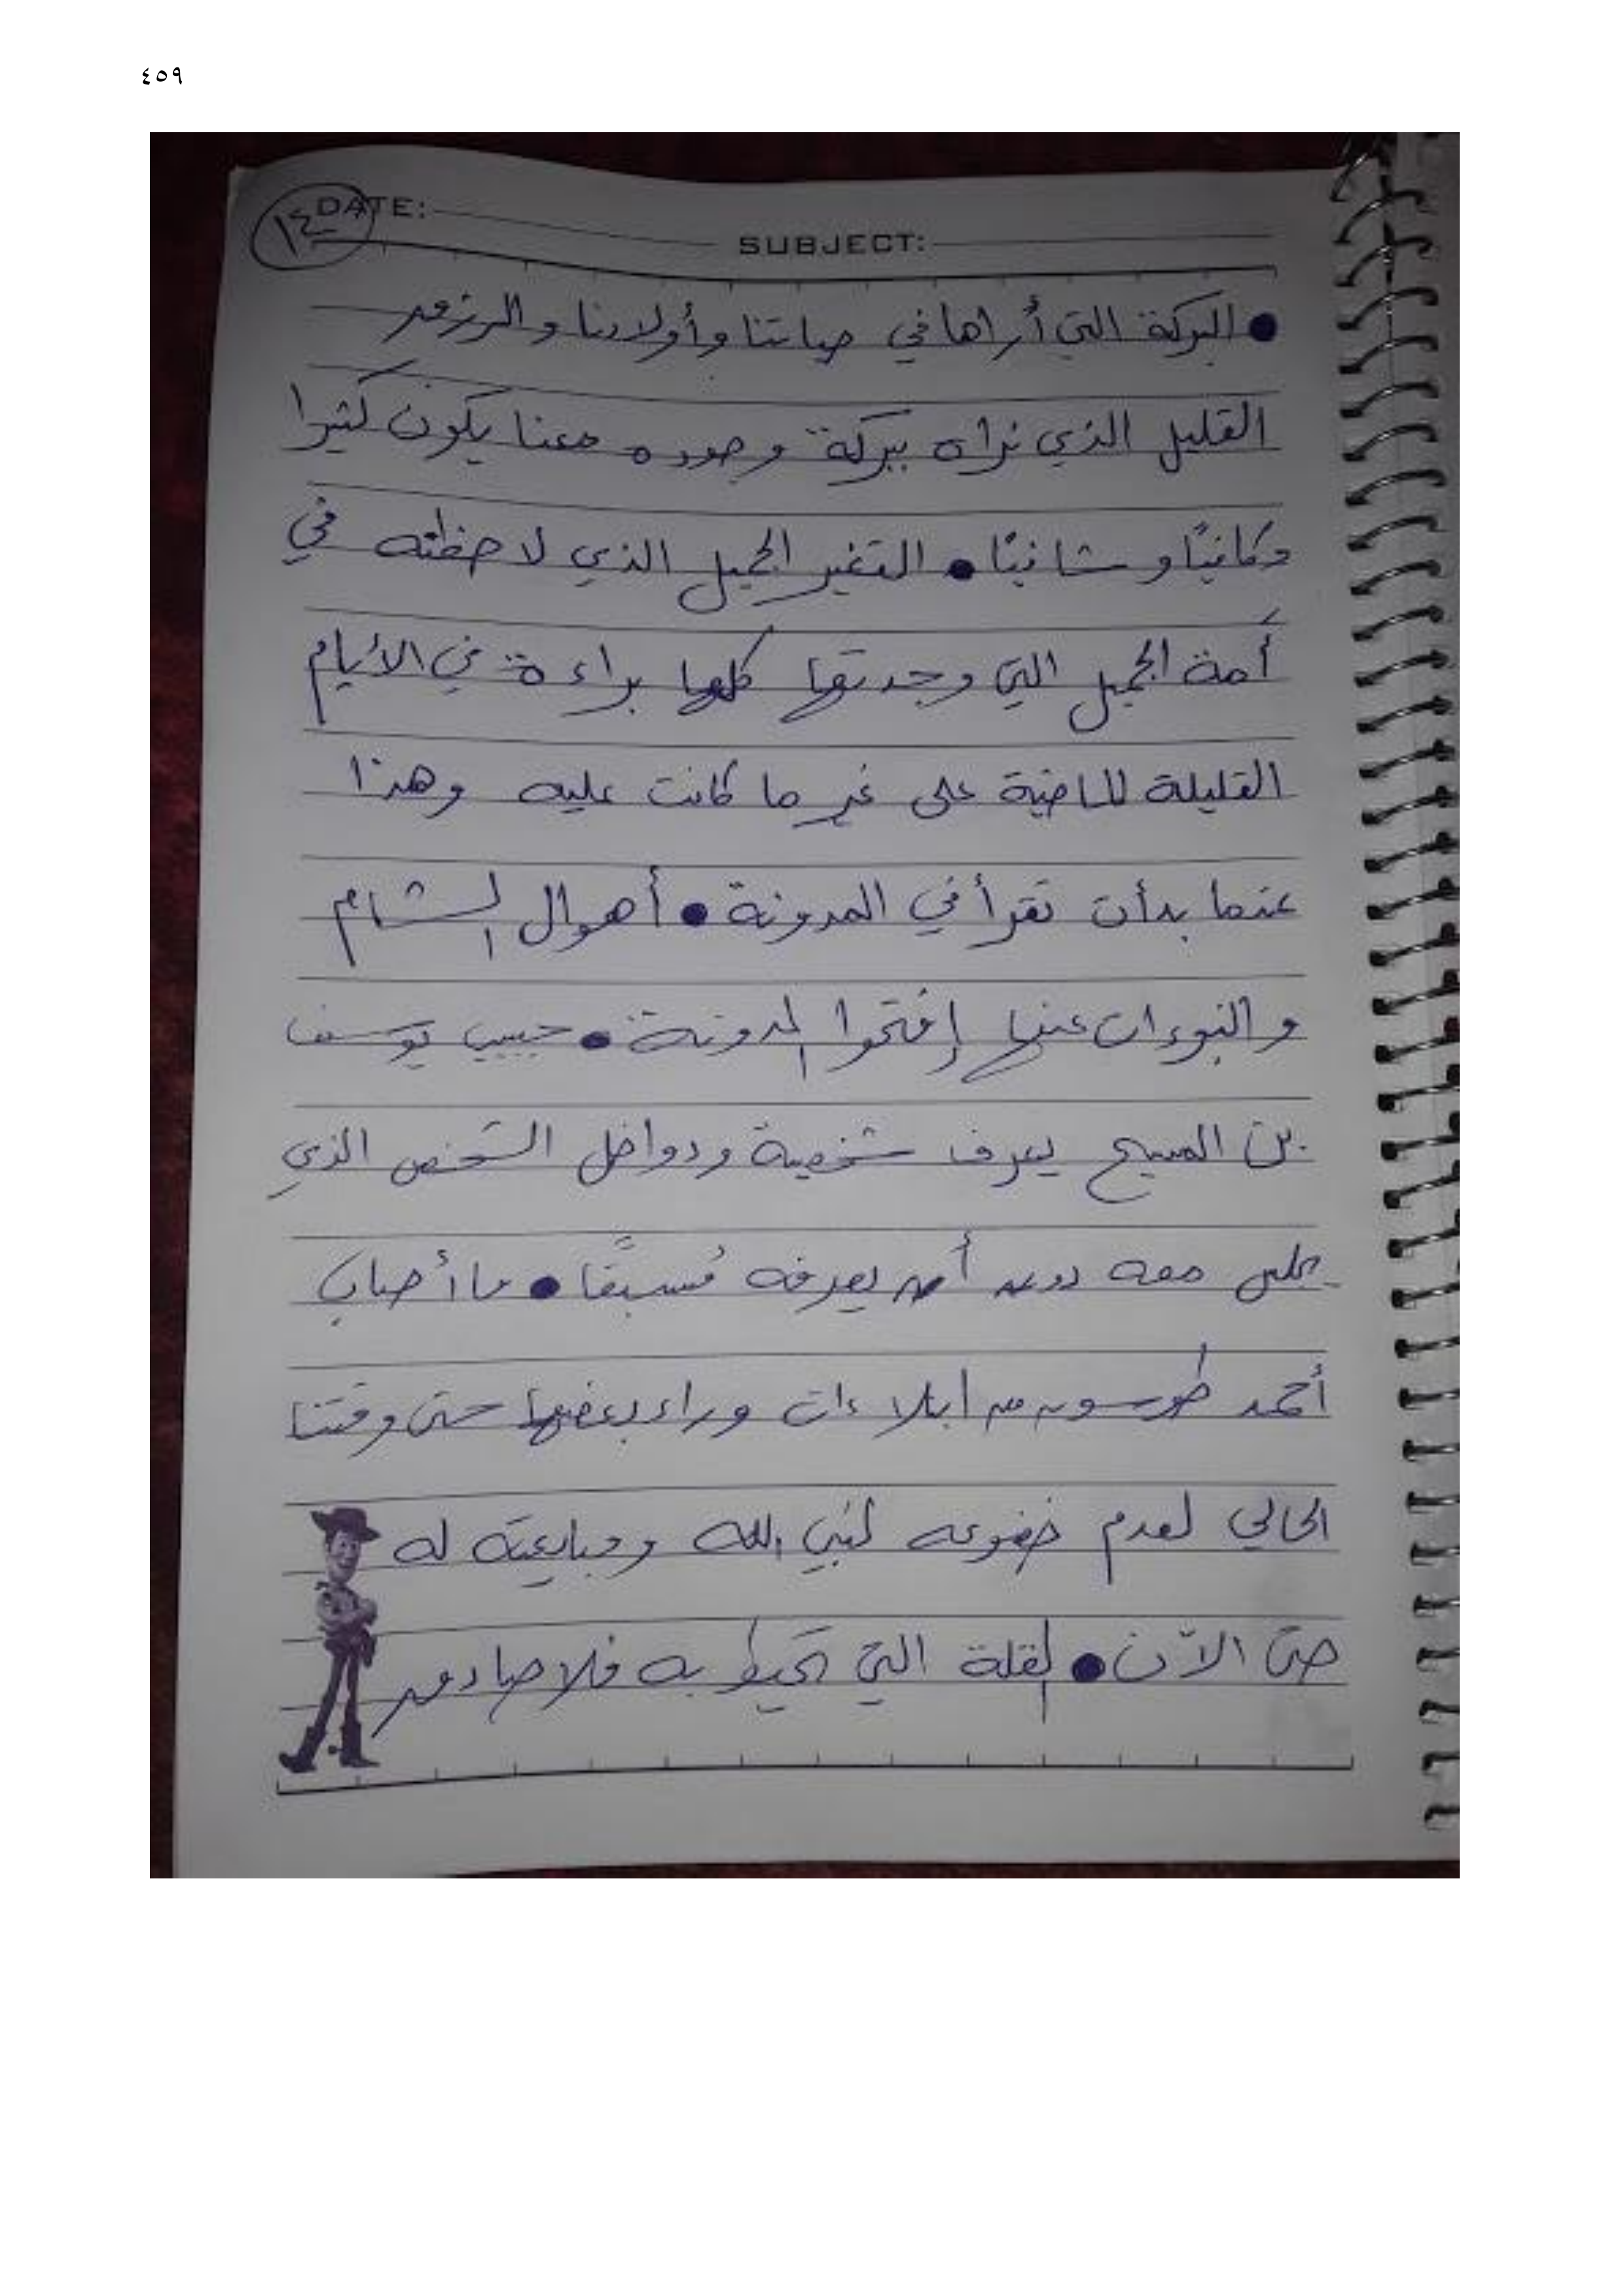 ٤٥٩
١٤
DATE:
SUBJECT:
● البركة التي أراها في حياتنا وأولادنا والرزق
القليل الذي نراه ببركة وجوده معنا يكون كثيرا
وكافيًا و شافيًا ● التغير الجميل الذي لاحظته في
أمة الجميل التي وجدتها كلها براءة في الأيام
القليلة الماضية على غير ما كانت عليه وهذا
عندما بدأت تقرأ في المدونة ● أهوال الشام
والنبوءات عنها إفتحوا المدونة ● حبيب يوسف
بن المسيح يعرف شخصية ودواخل الشخص الذي
يجلس معه دون أن يعرفه مُسبقًا ● ما أصاب
أحمد طوسون من ابلاءات وراء بعضها حتى وقتنا
الحالي لعدم خضوعه لنبي الله ومبايعته له
حتى الآن ● القلة التي تحيط به فلا صادق